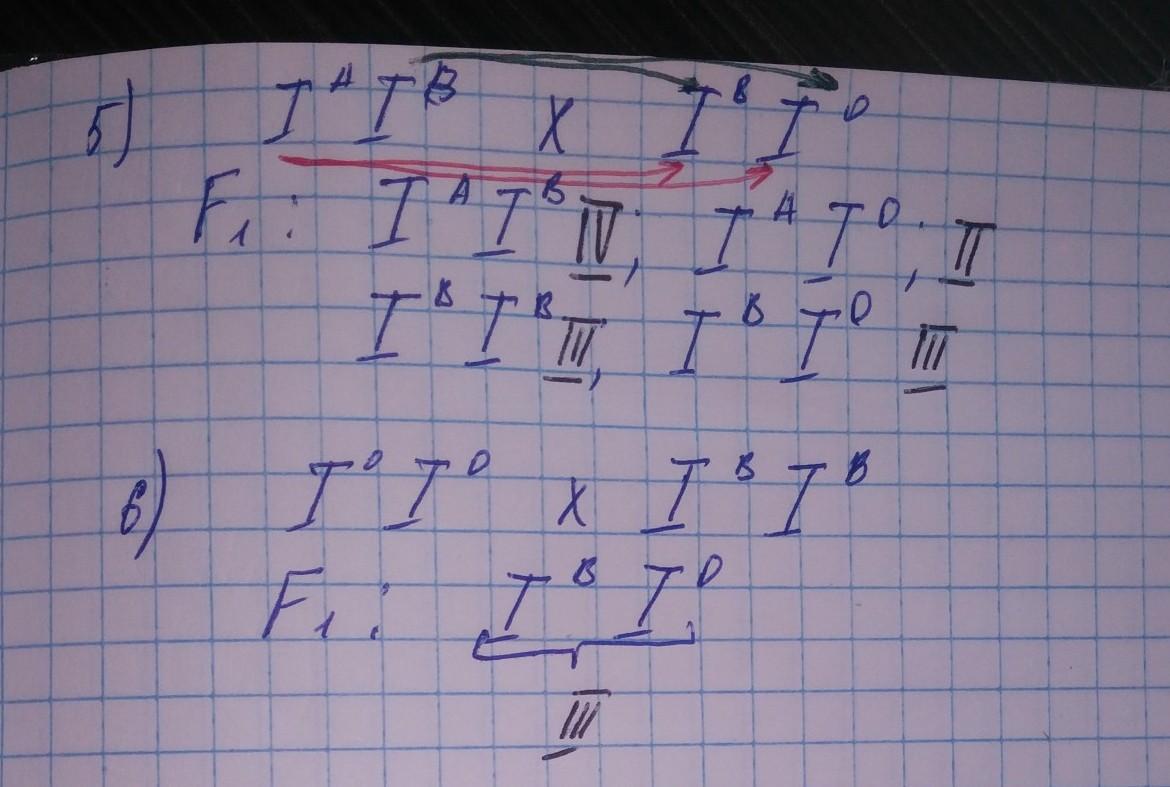 5) I^A I^B X I^B I^O
F₁: I^A I^B IV; I^A I^O; II
I^B I^B III, I^B I^O III
6) I^O I^O X I^B I^B
F₁: I^B I^O
III